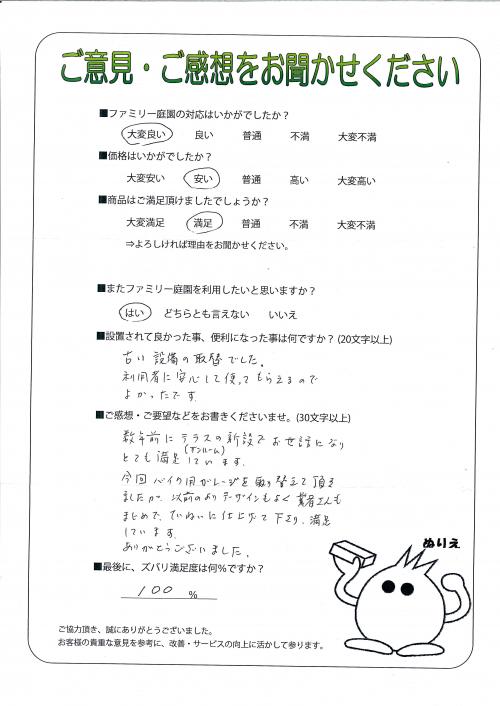 ご意見・ご感想をお聞かせください
■ファミリー庭園の対応はいかがでしたか？
大変良い 良い 普通 不満 大変不満
■価格はいかがでしたか？
大変安い 安い 普通 高い 大変高い
■商品はご満足頂けましたでしょうか？
大変満足 満足 普通 不満 大変不満
⇒よろしければ理由をお聞かせください。
■またファミリー庭園を利用したいと思いますか？
はい どちらとも言えない いいえ
■設置されて良かった事、便利になった事は何ですか？(20文字以上)
古い設備の取替でした。
利用者に安心して使ってもらえるので
よかったです
■ご感想・ご要望などをお書きくださいませ。(30文字以上)
数年前にテラスの新設でお世話になり
(サンルーム)
とても満足しています。
今回バイク用ガレージを取り替えて頂き
ましたが、以前のよりデザインもよく業者さんも
まじめで、ていねいに仕上げて下さり、満足
しています。
ありがとうございました。
■最後に、ズバリ満足度は何％ですか？
100 %
ぬりえ
ご協力頂き、誠にありがとうございました。
お客様の貴重な意見を参考に、改善・サービスの向上に活かして参ります。